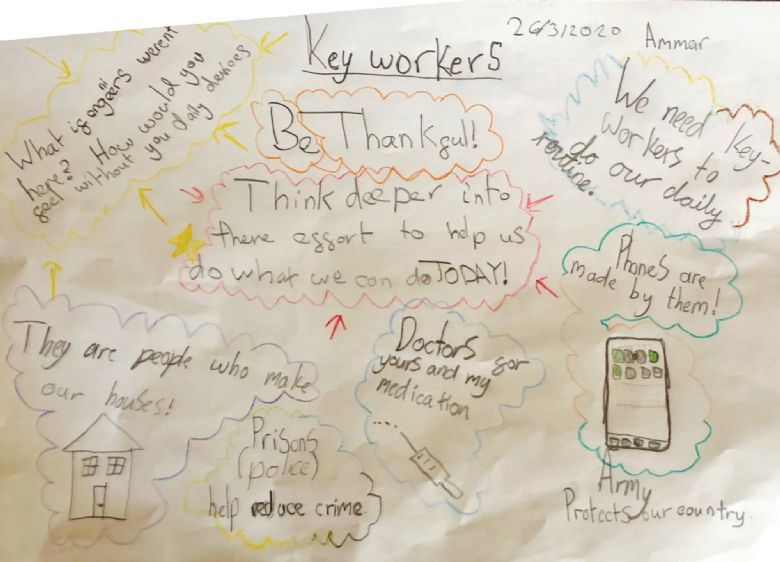 26/3/2020 Ammar
Key workers
What is engeers werent
here? How would you
geel without you daily devices
Be Thankgul!
We need key-
workers to
do our daily
routine.
Think deeper into
there essort to help us
do what we can do TODAY!
Phones are
made by them!
They are people who make
our houses!
Doctors gor
yours and my
medication
Prisons
(police)
help reduce crime
Army
Protects our country.